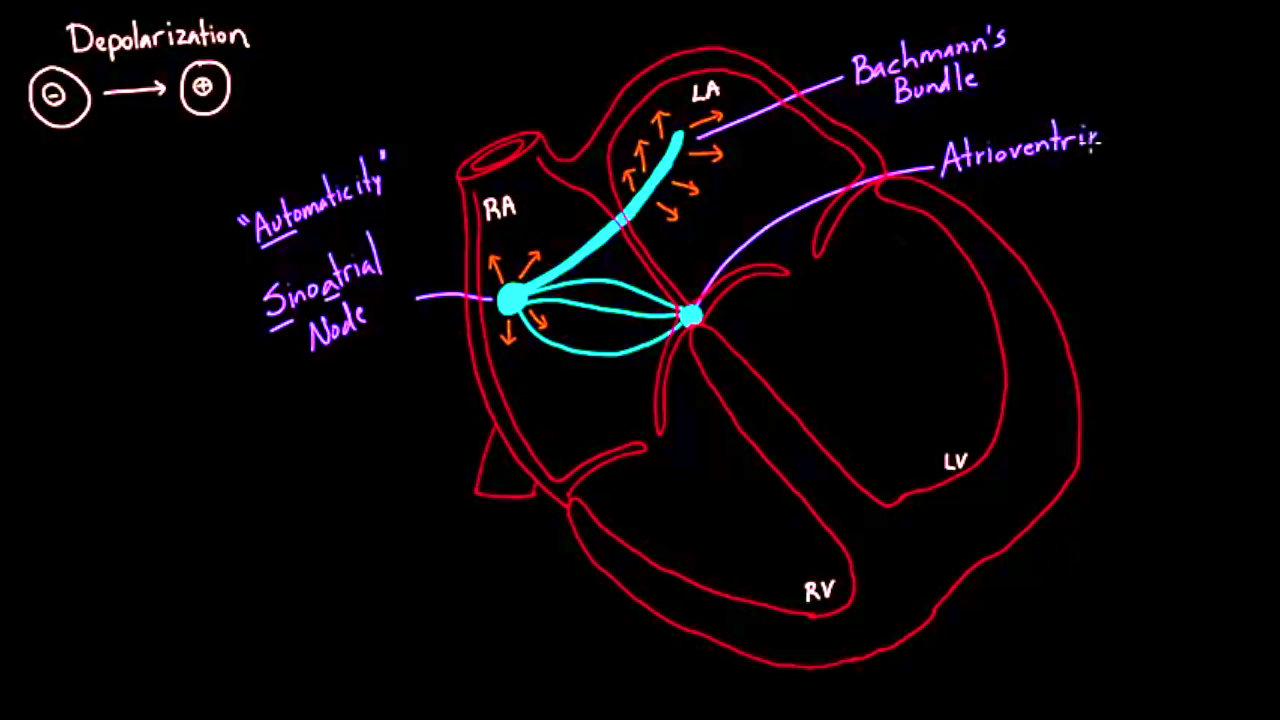 Depolarization
- → +
"Automaticity"
Sinoatrial
Node
RA
LA
Bachmann's
Bundle
Atrioventri
LV
RV